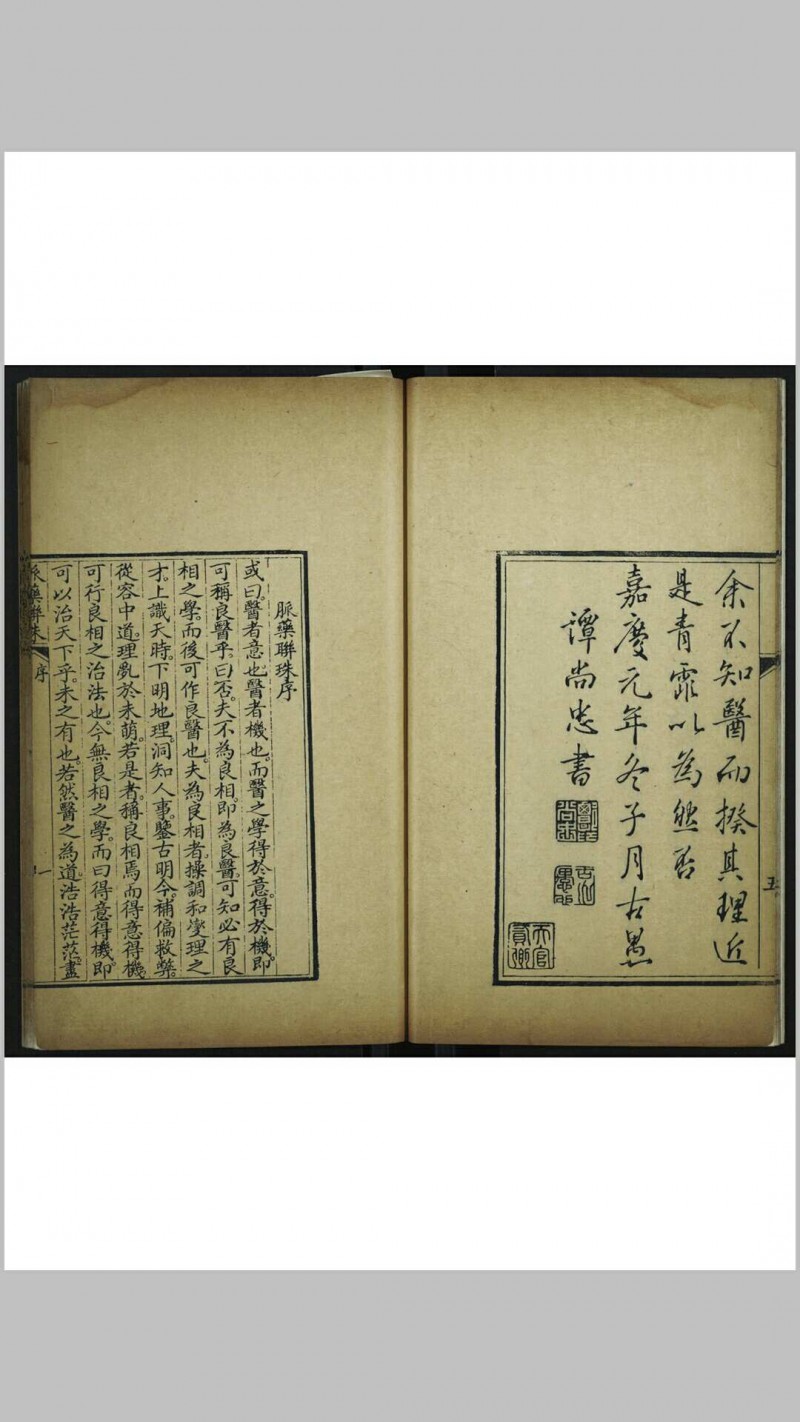 余不知醫而揆其理近
是青霏以為然否
嘉慶元年冬子月古愚
譚尚忠書
五
脈藥聯珠序
或曰。醫者意也。醫者機也。而醫之學得於意。得於機。即
可稱良醫乎。曰否。夫不為良相。即為良醫。可知必有良
相之學。而後可作良醫也。夫為良相者。操調和燮理之
才。上識天時。下明地理。洞知人事。鑒古明今。補偏救弊。
從容中道。理亂於未萌。若是者。稱良相焉。而得意得機。
可行良相之治法也。今無良相之學。而曰得意得機。即
可以治天下乎。未之有也。若然醫之為道。浩浩茫茫。盡
脈藥聯珠
序
一